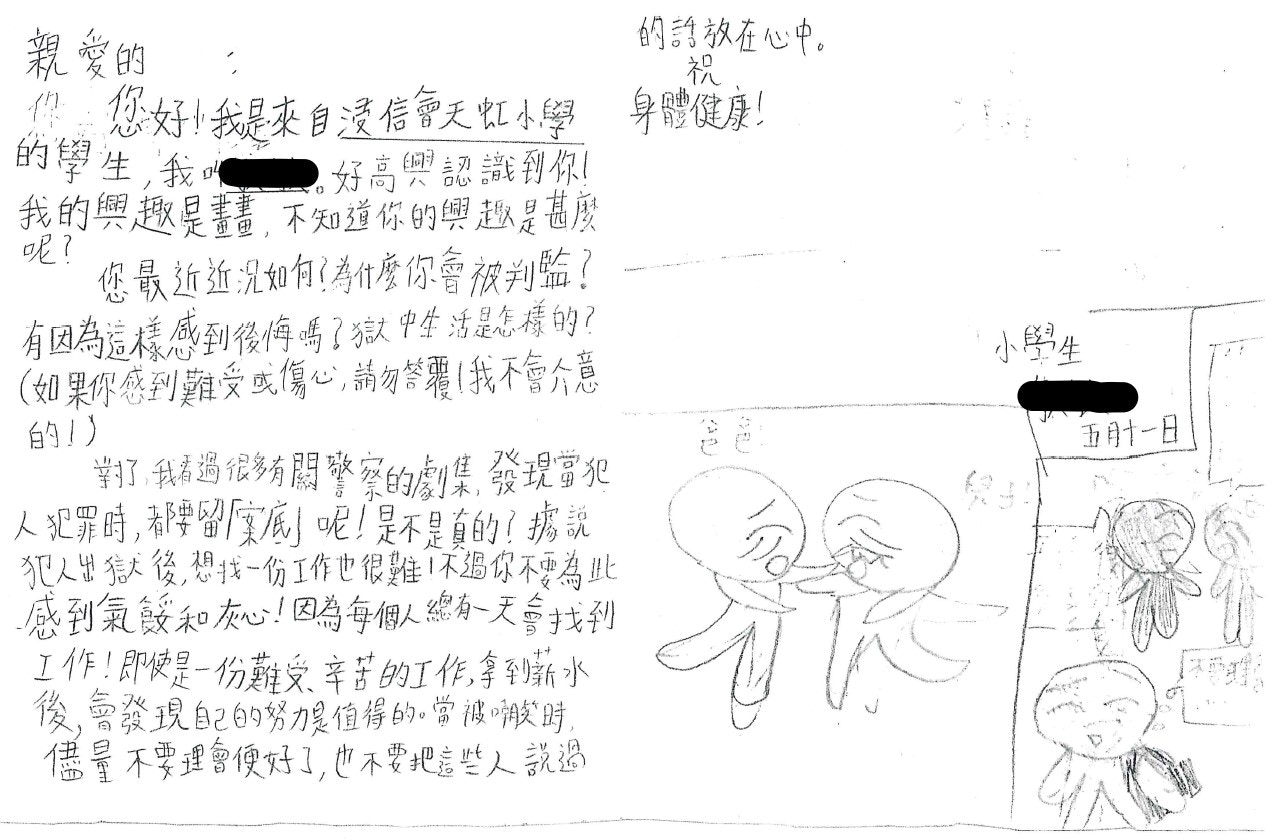 親愛的 :
你 您好!我是來自浸信會天虹小學
的學生,我叫 。好高興認識到你!
我的興趣是畫畫,不知道你的興趣是甚麼
呢?
您最近近況如何?為什麼你會被判監?
有因為這樣感到後悔嗎?獄中生活是怎樣的?
(如果你感到難受或傷心,請勿答覆!我不會介意
的!)
對了,我看過很多有關警察的劇集,發現當犯
人犯罪時,都要留「案底」呢!是不是真的?據說
犯人出獄後,想找一份工作也很難!不過你不要為此
感到氣餒和灰心!因為每個人總有一天會找到
工作!即使是一份難受、辛苦的工作,拿到薪水
後,會發現自己的努力是值得的。當被嘲笑時,
儘量不要理會便好了,也不要把這些人說過
的話放在心中。
祝
身體健康!
小學生
五月十一日
爸爸
不要理